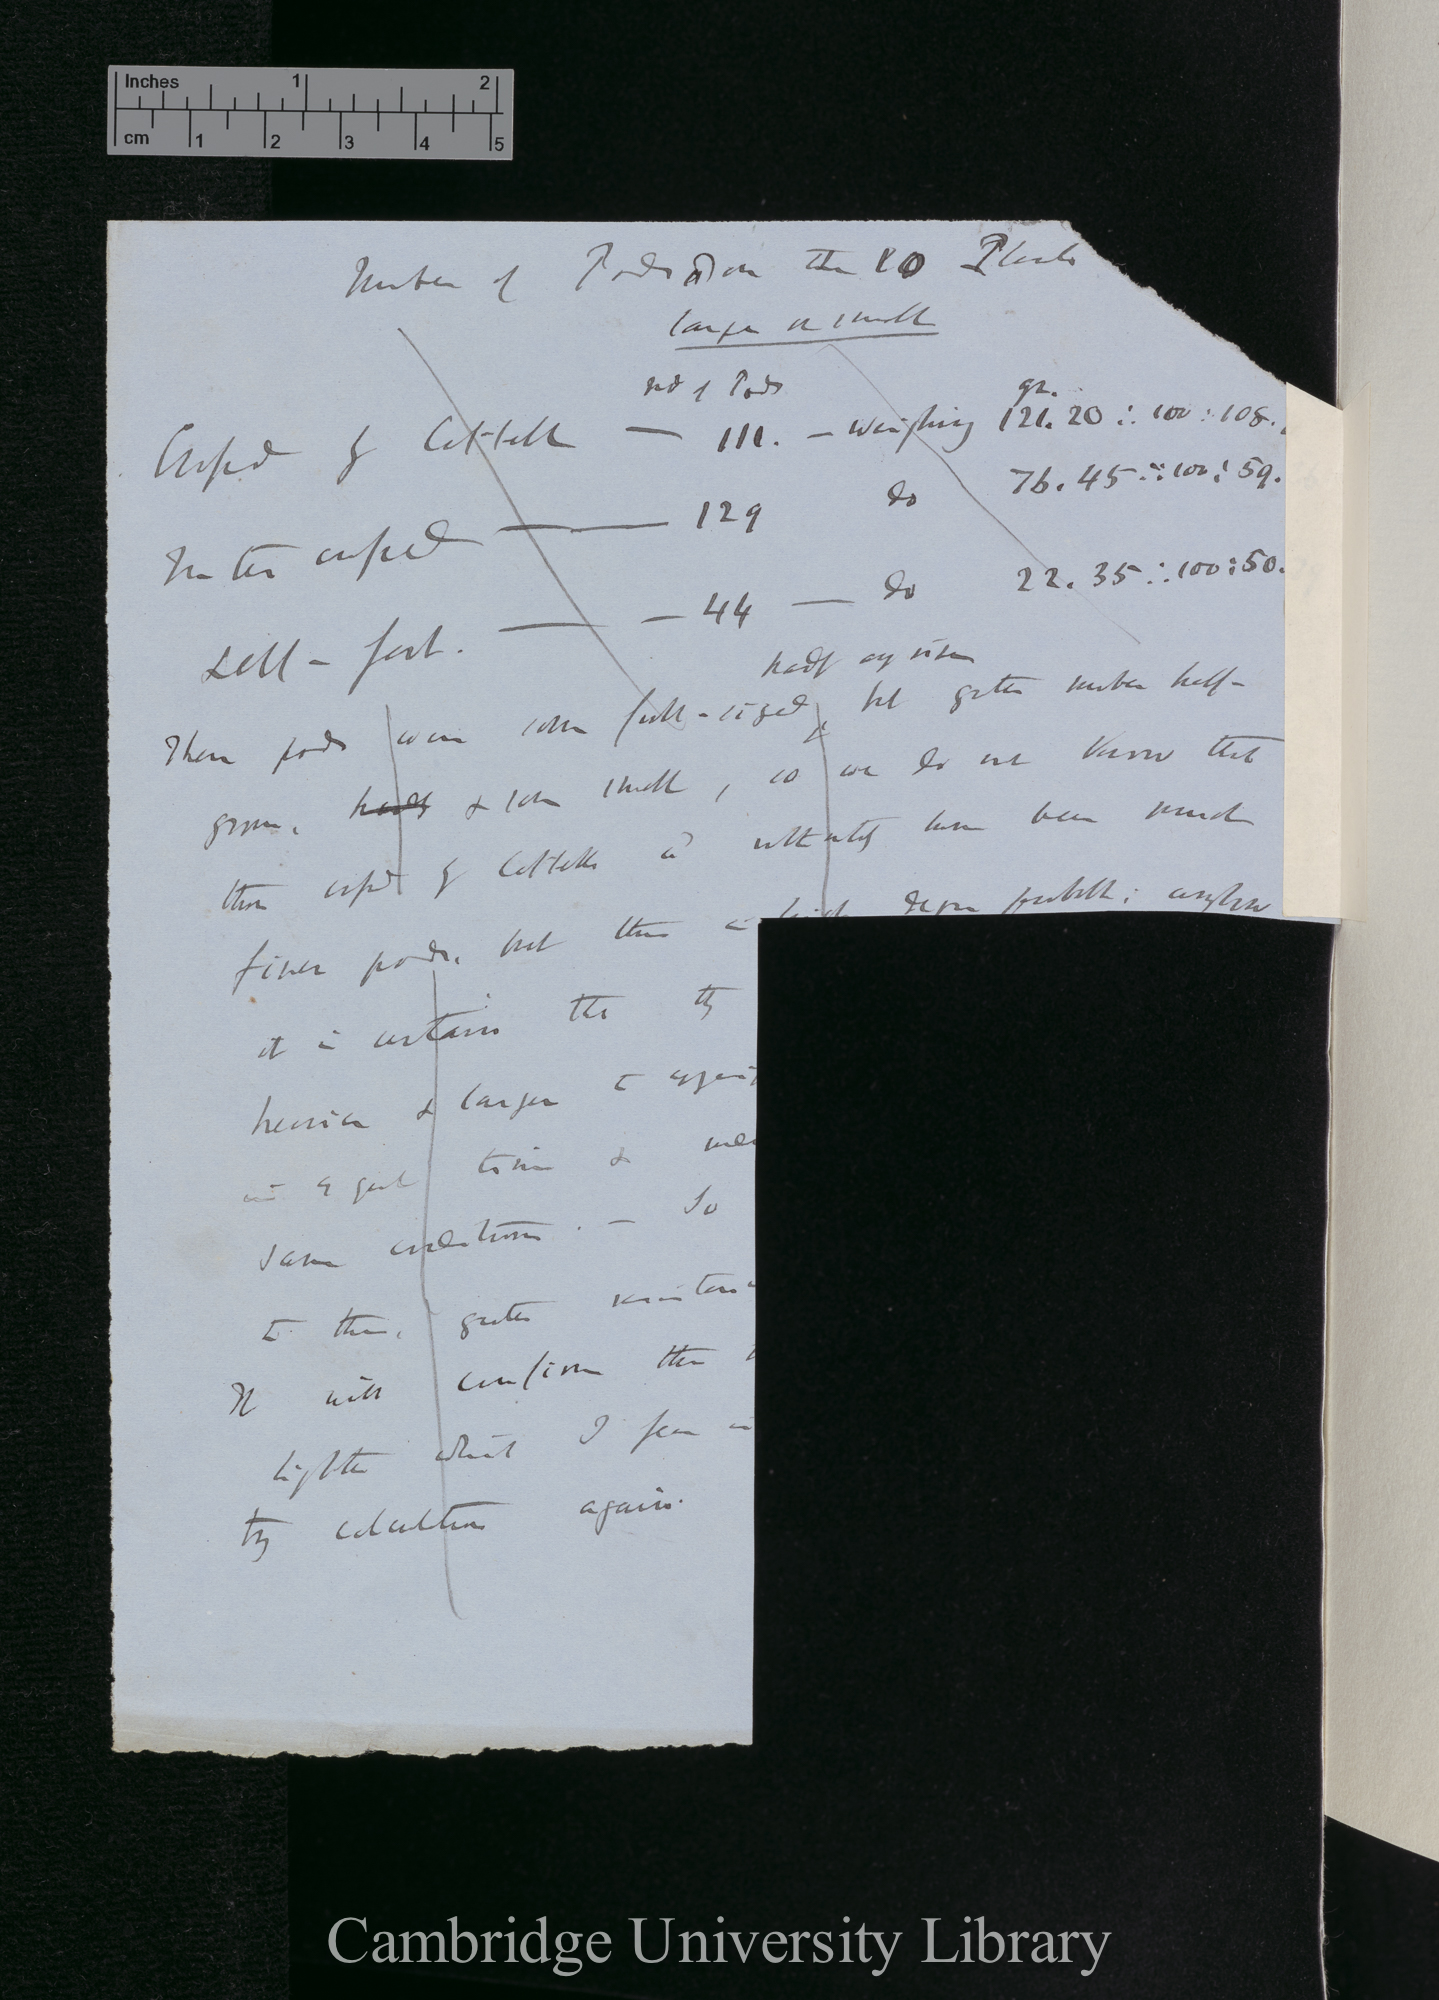 Inches 1 2
cm 1 2 3 4 5
Number of Pods on the 10 Plants
large or small
no of Pods
gr.
Crossed by Cattell — 111. — weighing 121.20 ∴ 100 : 108.
Inter crossed — 129 do 76.45 ∴ 100 : 59.
Self-fert. — 44 — do 22.35 ∴ 100 : 50.
half again
These pods were some full-sized, but greater number half-
grown. & some small, so we do not know that
those crossed by Cattells would ultimately have been much
finer pods. but this is in high degree probable; anyhow
it is certain that they
heavier & larger to
in equal time &
same conditions. — So
to them, greater
It will confirm the
lighter which I fear
try calculations again.
Cambridge University Library